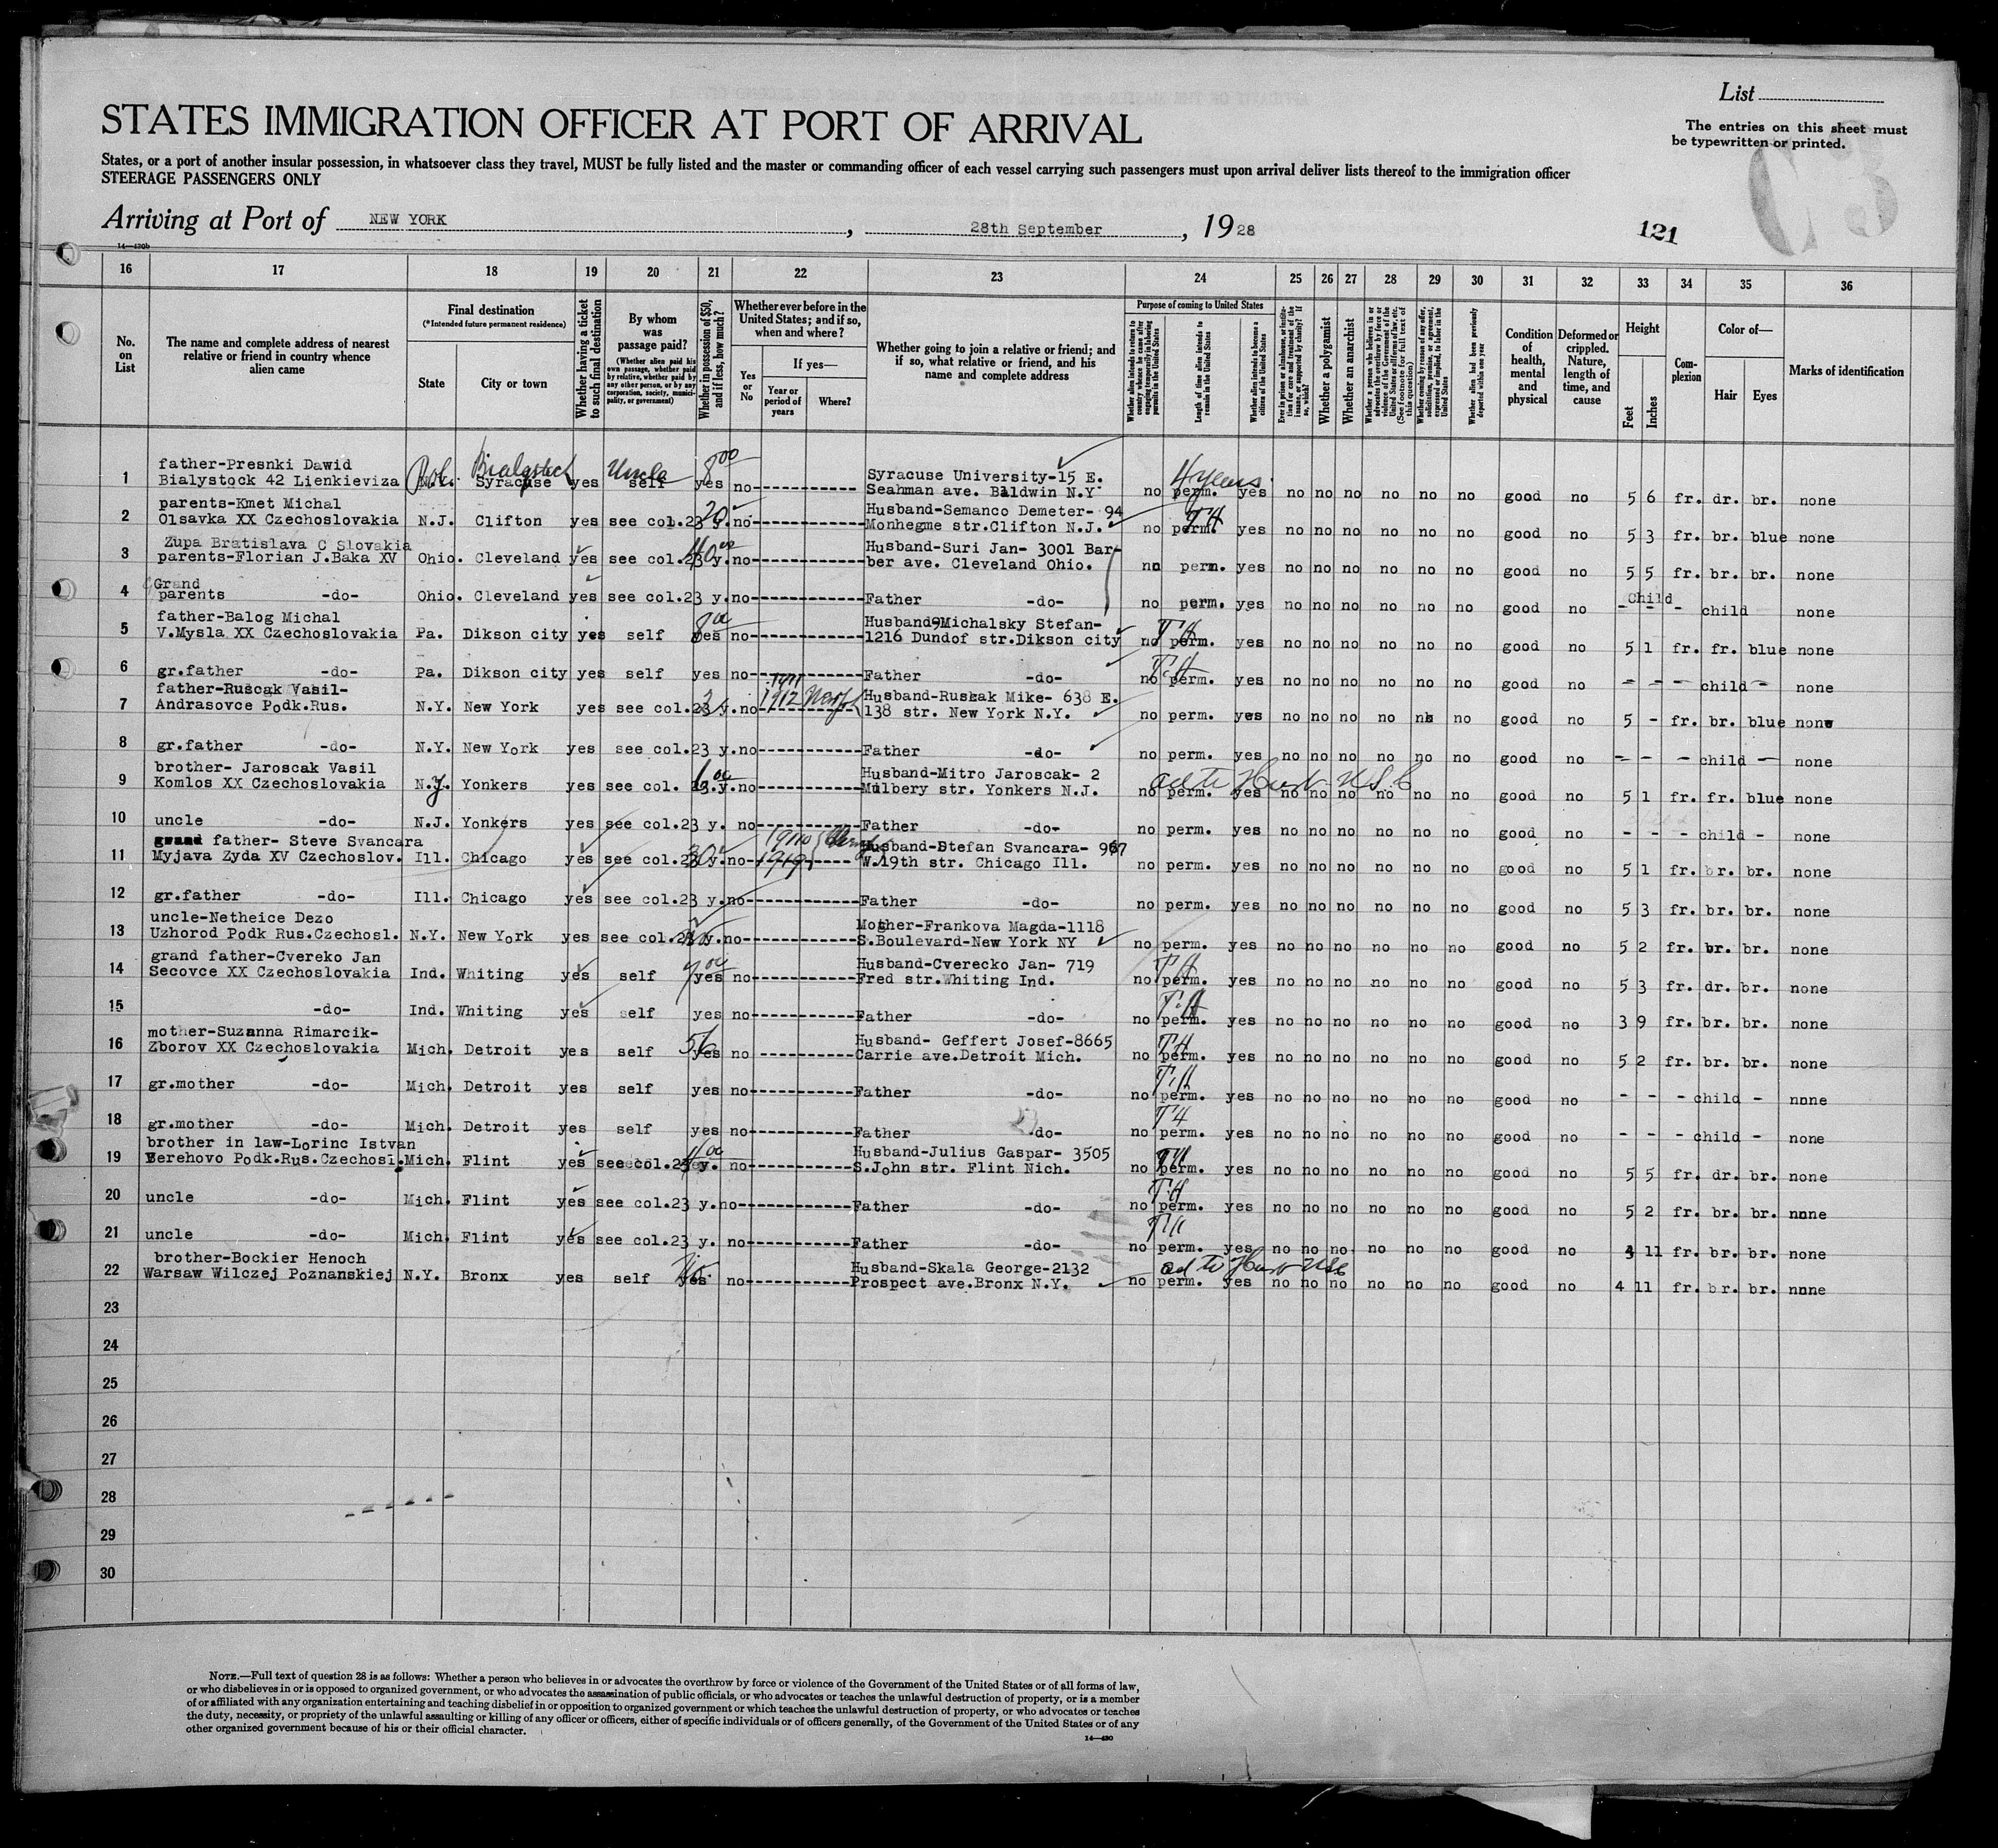 List
The entries on this sheet must
be typewritten or printed.
STATES IMMIGRATION OFFICER AT PORT OF ARRIVAL
States, or a port of another insular possession, in whatsoever class they travel, MUST be fully listed and the master or commanding officer of each vessel carrying such passengers must upon arrival deliver lists thereof to the immigration officer
STEERAGE PASSENGERS ONLY
Arriving at Port of NEW YORK, 28th September, 1928
121
14—430b
16 17 18 19 20 21 22 23 24 25 26 27 28 29 30 31 32 33 34 35 36
No. on List
The name and complete address of nearest
relative or friend in country whence
alien came
Final destination
(*Intended future permanent residence)
State
City or town
Whether having a ticket
to such final destination
By whom
was
passage paid?
(Whether alien paid his
own passage, whether paid
by relative, whether paid by
any other person, or by any
corporation, society, munici-
pality, or government)
Whether in possession of $50,
and if less, how much?
Whether ever before in the
United States; and if so,
when and where?
Yes or No
If yes—
Year or period of years
Where?
Whether going to join a relative or friend; and
if so, what relative or friend, and his
name and complete address
Purpose of coming to United States
Whether alien intends to return to
country whence he came after
engaging temporarily in laboring
pursuits in the United States
Length of time alien intends to
remain in the United States
Whether alien intends to become a
citizen of the United States
Ever in prison or almshouse, or institu-
tion for care and treatment of the
insane, or supported by charity? If
so, which?
Whether a polygamist
Whether an anarchist
Whether a person who believes in or
advocates the overthrow by force or
violence of the Government of the
United States or all forms of law, etc.
(See footnote for full text of
this question.)
Whether coming by reason of any offer,
solicitation, promise, or agreement,
expressed or implied, to labor in the
United States
Whether alien had been previously
deported within one year
Condition of health, mental and physical
Deformed or crippled. Nature, length of time, and cause
Height
Feet
Inches
Com-
plexion
Color of—
Hair
Eyes
Marks of identification
father-Presnki Dawid Bialystock Uncle 8 00 Syracuse University-15 E. 4 years
1 Bialystock 42 Lienkieviza Pol. N.Y. Syracuse yes self yes no Seahman ave. Baldwin N.Y. no perm. yes no no no no no no good no 5 6 fr. dr. br. none
parents-Kmet Michal 20 Husband-Semanco Demeter- 94 TH
2 Olsavka XX Czechoslovakia N.J. Clifton yes see col.23 y. no Monhegme str.Clifton N.J. no perm. yes no no no no no no good no 5 3 fr. br. blue none
Zupa Bratislava C Slovakia 40 00 Husband-Suri Jan- 3001 Bar-
3 parents-Florian J.Baka XV Ohio. Cleveland yes see col.23 y. no ber ave. Cleveland Ohio. no perm. yes no no no no no no good no 5 5 fr. br. br. none
Grand Child
4 parents -do- Ohio. Cleveland yes see col.23 y. no Father -do- no perm. yes no no no no no no good no - - - child none
father-Balog Michal Husband-Michalsky Stefan- TH
5 V.Mysla XX Czechoslovakia Pa. Dikson city yes self yes no 1216 Dundof str.Dikson city no perm. yes no no no no no no good no 5 1 fr. fr. blue none
6 gr.father -do- Pa. Dikson city yes self yes no Father -do- TH no perm. yes no no no no no no good no - - - child - none
father-Ruscak Vasil- 1911 1912 Husband-Ruskak Mike- 638 E.
7 Andrasovce Podk.Rus. N.Y. New York yes see col.23 y. no 138 str. New York N.Y. no perm. yes no no no no no no good no 5 - fr. br. blue none
8 gr.father -do- N.Y. New York yes see col.23 y. no Father -do- no perm. yes no no no no no no good no - - - child - none
brother- Jaroscak Vasil 1 00 Husband-Mitro Jaroscak- 2 ad to Husb USC
9 Komlos XX Czechoslovakia N.Y. Yonkers yes see col. 23.y. no Mulbery str. Yonkers N.J. no perm. yes no no no no no no good no 5 1 fr. fr. blue none
10 uncle -do- N.J. Yonkers yes see col.23 y. no Father -do- no perm. yes no no no no no no good no - - - child - none
grand father- Steve Svancara 30 1910 1919 Husband-Stefan Svancara- 967
11 Myjava Zyda XV Czechoslov. Ill. Chicago yes see col.23 y. no W.19th str. Chicago Ill. no perm. yes no no no no no no good no 5 1 fr. br. br. none
12 gr.father -do- Ill. Chicago yes see col.23 y. no Father -do- no perm. yes no no no no no no good no 5 3 fr. br. br. none
uncle-Netheice Dezo Mother-Frankova Magda-1118
13 Uzhorod Podk Rus.Czechosl. N.Y. New York yes see col.23 y. no S.Boulevard-New York NY no perm. yes no no no no no no good no 5 2 fr. br. br. none
grand father-Cvereko Jan 7 00 Husband-Cverecko Jan- 719 TH
14 Secovce XX Czechoslovakia Ind. Whiting yes self yes no Fred str.Whiting Ind. no perm. yes no no no no no no good no 5 3 fr. dr. br. none
15 -do- Ind. Whiting yes self yes no Father -do- TH no perm. yes no no no no no no good no 3 9 fr. br. br. none
mother-Suzanna Rimarcik- Husband- Geffert Josef-8665 TH
16 Zborov XX Czechoslovakia Mich. Detroit yes self yes no Carrie ave.Detroit Mich. no perm. yes no no no no no no good no 5 2 fr. br. br. none
17 gr.mother -do- Mich. Detroit yes self yes no Father -do- TH no perm. yes no no no no no no good no - - - child - none
18 gr.mother -do- Mich. Detroit yes self yes no Father -do- TH no perm. yes no no no no no no good no - - - child - none
brother in law-Lorinc Istvan Husband-Julius Gaspar- 3505 TH
19 Berehovo Podk.Rus.Czechosl. Mich. Flint yes see col.23 y. no S.John str. Flint Nich. no perm. yes no no no no no no good no 5 5 fr. dr. br. none
20 uncle -do- Mich. Flint yes see col.23 y. no Father -do- TH no perm. yes no no no no no no good no 5 2 fr. br. br. none
21 uncle -do- Mich. Flint yes see col.23 y. no Father -do- TH no perm. yes no no no no no no good no 11 fr. br. br. none
brother-Bockier Henoch Husband-Skala George-2132 ad to Husb USC
22 Warsaw Wilczej Poznanskiej N.Y. Bronx yes self yes no Prospect ave.Bronx N.Y. no perm. yes no no no no no no good no 4 11 fr. br. br. none
23
24
25
26
27
28
29
30
NOTE.—Full text of question 28 is as follows: Whether a person who believes in or advocates the overthrow by force or violence of the Government of the United States or of all forms of law,
or who disbelieves in or is opposed to organized government, or who advocates the assassination of public officials, or who advocates or teaches the unlawful destruction of property, or is a member
of or affiliated with any organization entertaining and teaching disbelief in or opposition to organized government or which teaches the unlawful destruction of property, or who advocates or teaches
the duty, necessity, or propriety of the unlawful assaulting or killing of any officer or officers, either of specific individuals or of officers generally, of the Government of the United States or of any
other organized government because of his or their official character.
14—430